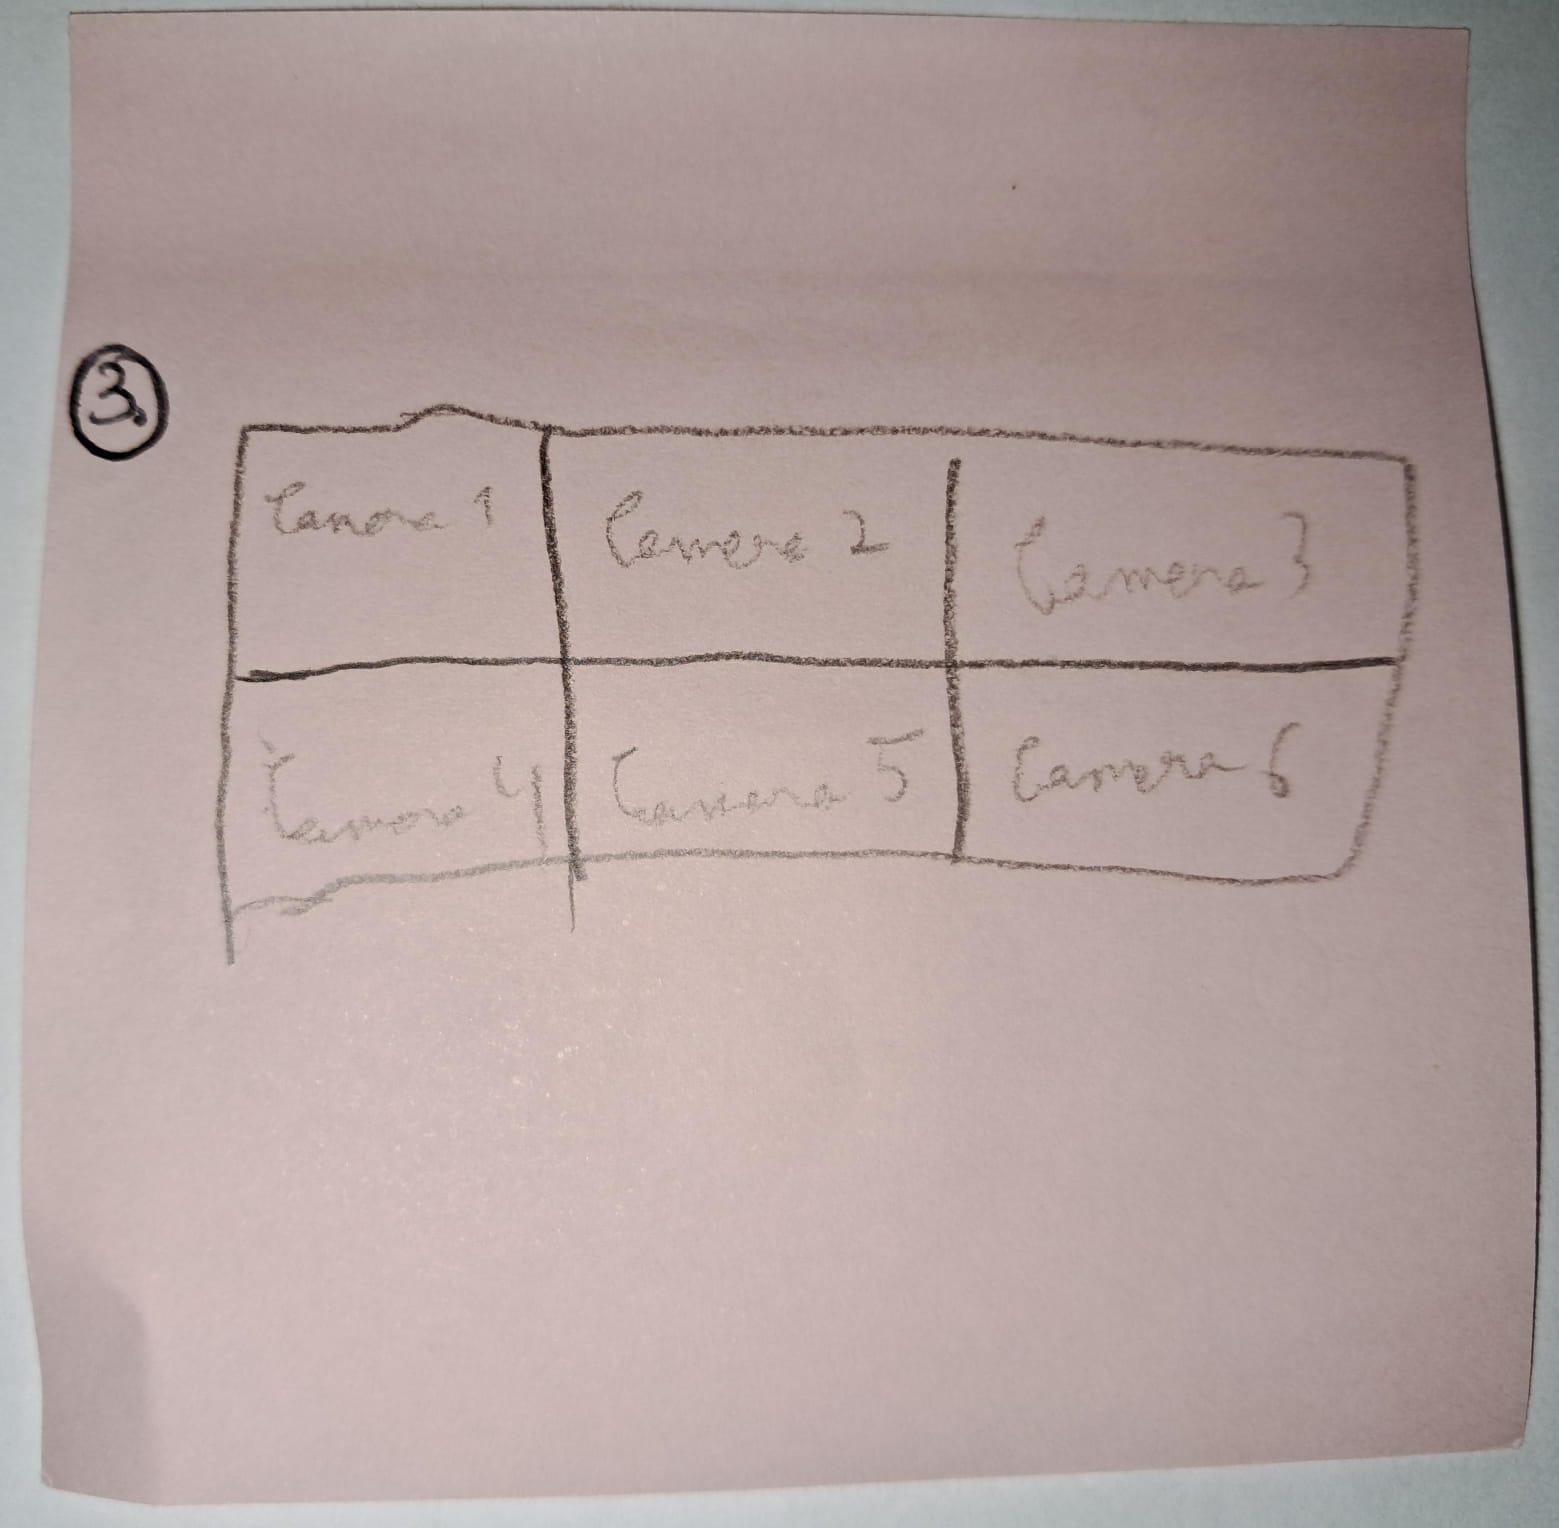 3.
Camera 1 Camera 2 Camera 3
Camera 4 Camera 5 Camera 6